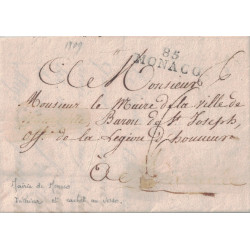 1809
85
MONACO
A Monsieur
Monsieur le Maire de la ville de
Baron de St Joseph,
Off. de la Légion d'honneur
à
Mairie de Monaco